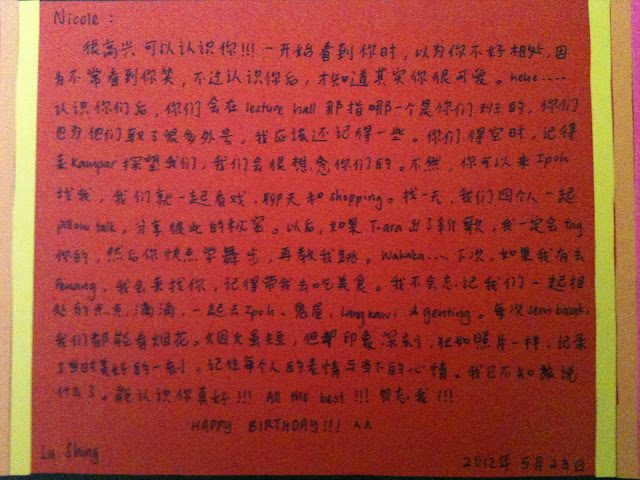 Nicole :
很高兴可以认识你!!! 一开始看到你时，以为你不好相处，因
为不常看到你笑，不过认识你后，才知道其实你很可爱。hehe....
认识你们后，你们会在 lecture hall 那指哪一个是你们班的，你们
已为他们取了很多外号，我应该还记得一些。你们得空时，记得
来Kampar 探望我们，我们会很想念你们的。不然，你可以来 Ipoh
找我，我们就一起看戏、聊天和shopping。找一天，我们四个人一起
pillow talk，分享彼此的秘密。以后，如果 T-ara 出了新歌，我一定会 tag
你的，然后你快点学舞步，再教我跳。Wakaka.... 下次，如果我有去
Penang，我会来找你，记得带我去吃美食。我不会忘记我们一起相
处的点点滴滴，一起去Ipoh、鬼屋，langkawi 与 genting。每次sem break，
我们都能看烟花。烟花虽短，但却印象深刻，犹如照片一样，记录
了当时美好的一刻，记住每个人的表情与当下的心情。我已不知该说
什么了。能认识你真好!!! All the best !!! 勿忘我!!!
HAPPY BIRTHDAY!!! ^^
Shing
2012年 5月23日